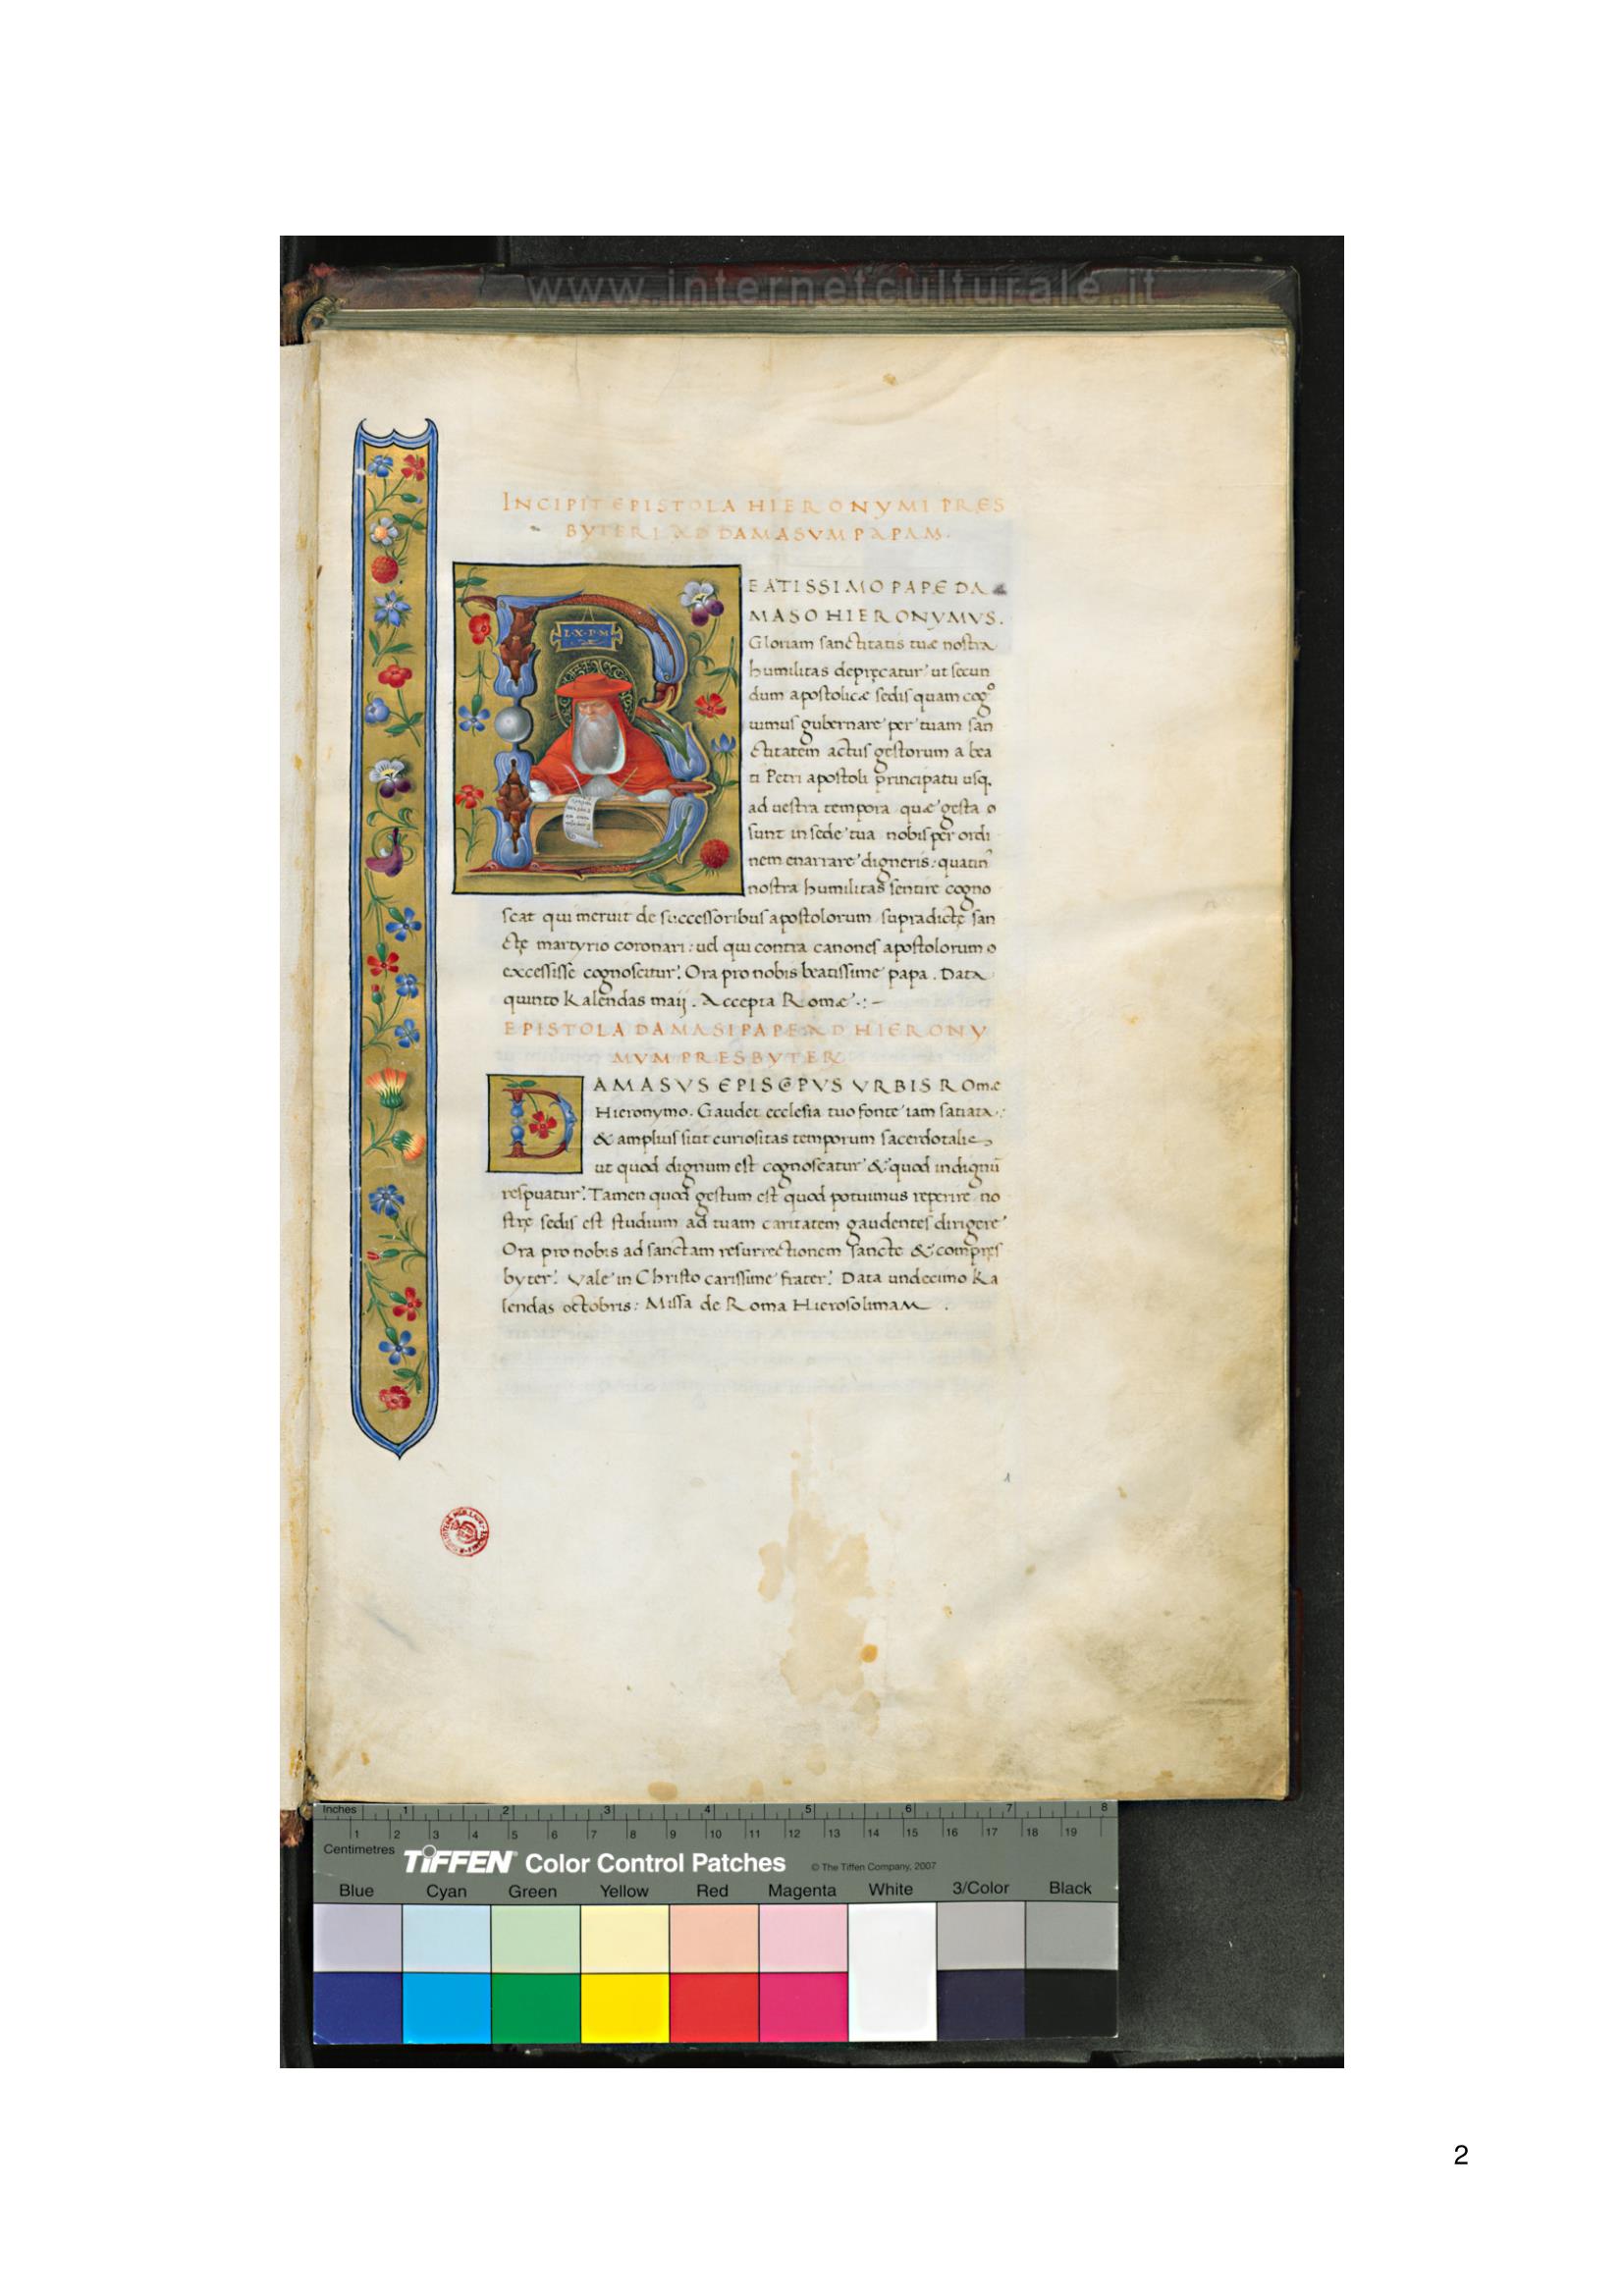 www.internetculturale.it
INCIPIT EPISTOLA HIERONYMI PRES
BYTERI AD DAMASVM PAPAM.
L·X·P·M
EATISSIMO PAPE DA
MASO HIERONYMVS.
Gloriam sanctitatis tuæ nostra
humilitas depręcatur ut secun
dum apostolicæ sedis quam cogº
uimus gubernare per tuam san
ctitatem actus gestorum a bea
ti Petri apostoli principatu usq.
ad uestra tempora quæ gesta o
sunt in sede tua nobis per ordi
nem enarrare digneris: quatin⁹
nostra humilitas sentire cogno
scat qui meruit de successoribus apostolorum supradictę san
ctę martyrio coronari: uel qui contra canones apostolorum o
excessisse cognoscitur. Ora pro nobis beatissime papa. Data
quinto Kalendas maij. Accepta Romæ .:–
EPISTOLA DAMASI PAPE AD HIERONY
MVM PRESBYTER
D AMASVS EPISCPVS VRBIS ROmæ
Hieronymo. Gaudet ecclesia tuo fonte iam satiata.:
& amplius sitit curiositas temporum sacerdotalis
ut quod dignum est cognoscatur & quod indignū
respuatur. Tamen quod gestum est quod potuimus reperire no
strę sedis est studium ad tuam caritatem gaudentes dirigere
Ora pro nobis ad sanctam resurrectionem sancte & compres
byter. Vale in Christo carissime frater. Data undecimo Ka
lendas octobris: Missa de Roma Hierosolimam .
Inches 1 2 3 4 5 6 7 8
1 2 3 4 5 6 7 8 9 10 11 12 13 14 15 16 17 18 19
Centimetres
TIFFEN Color Control Patches © The Tiffen Company, 2007
Blue Cyan Green Yellow Red Magenta White 3/Color Black
2